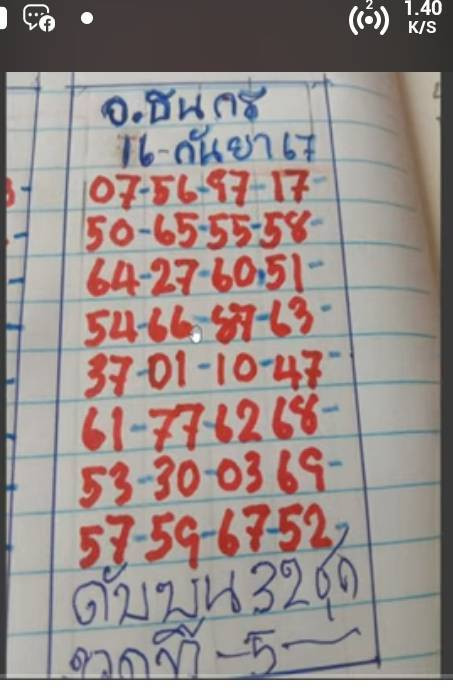 2
1.40
K/S
อ.ธินกรี
16-กันยา 67
07-56-97-17-
50-65-55-58-
64-27-60-51-
54-66-87-63-
37-01-10-47-
61-77-62 68-
53-30-03 69-
57-59-67-52-
ดับบน 32 ชุด
งวดที่ -5-